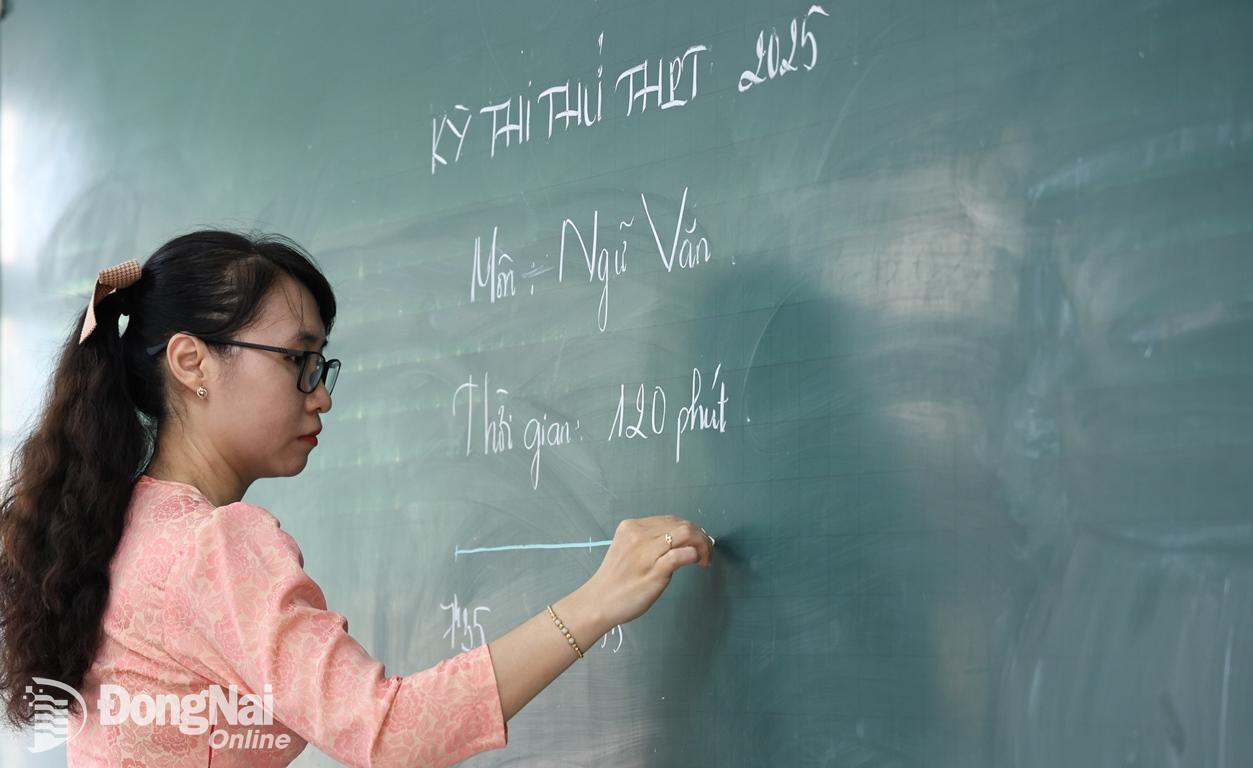 KỲ THI THỬ THPT 2025
Môn: Ngữ Văn.
Thời gian: 120 phút.
7h35
ĐồngNai
Online